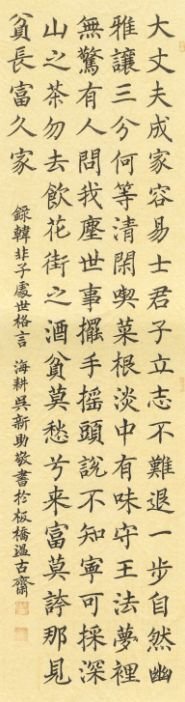 大丈夫成家容易士君子立志不難退一步自然幽
雅讓三分何等清閑喫菜根淡中有味守王法夢裡
無驚有人問我塵世事擺手搖頭說不知寧可採深
山之茶勿去飲花街之酒貧莫愁兮来富莫誇那見
貧長富久家
錄韓非子處世格言 海耕吳新助敬書於板橋溫古齋